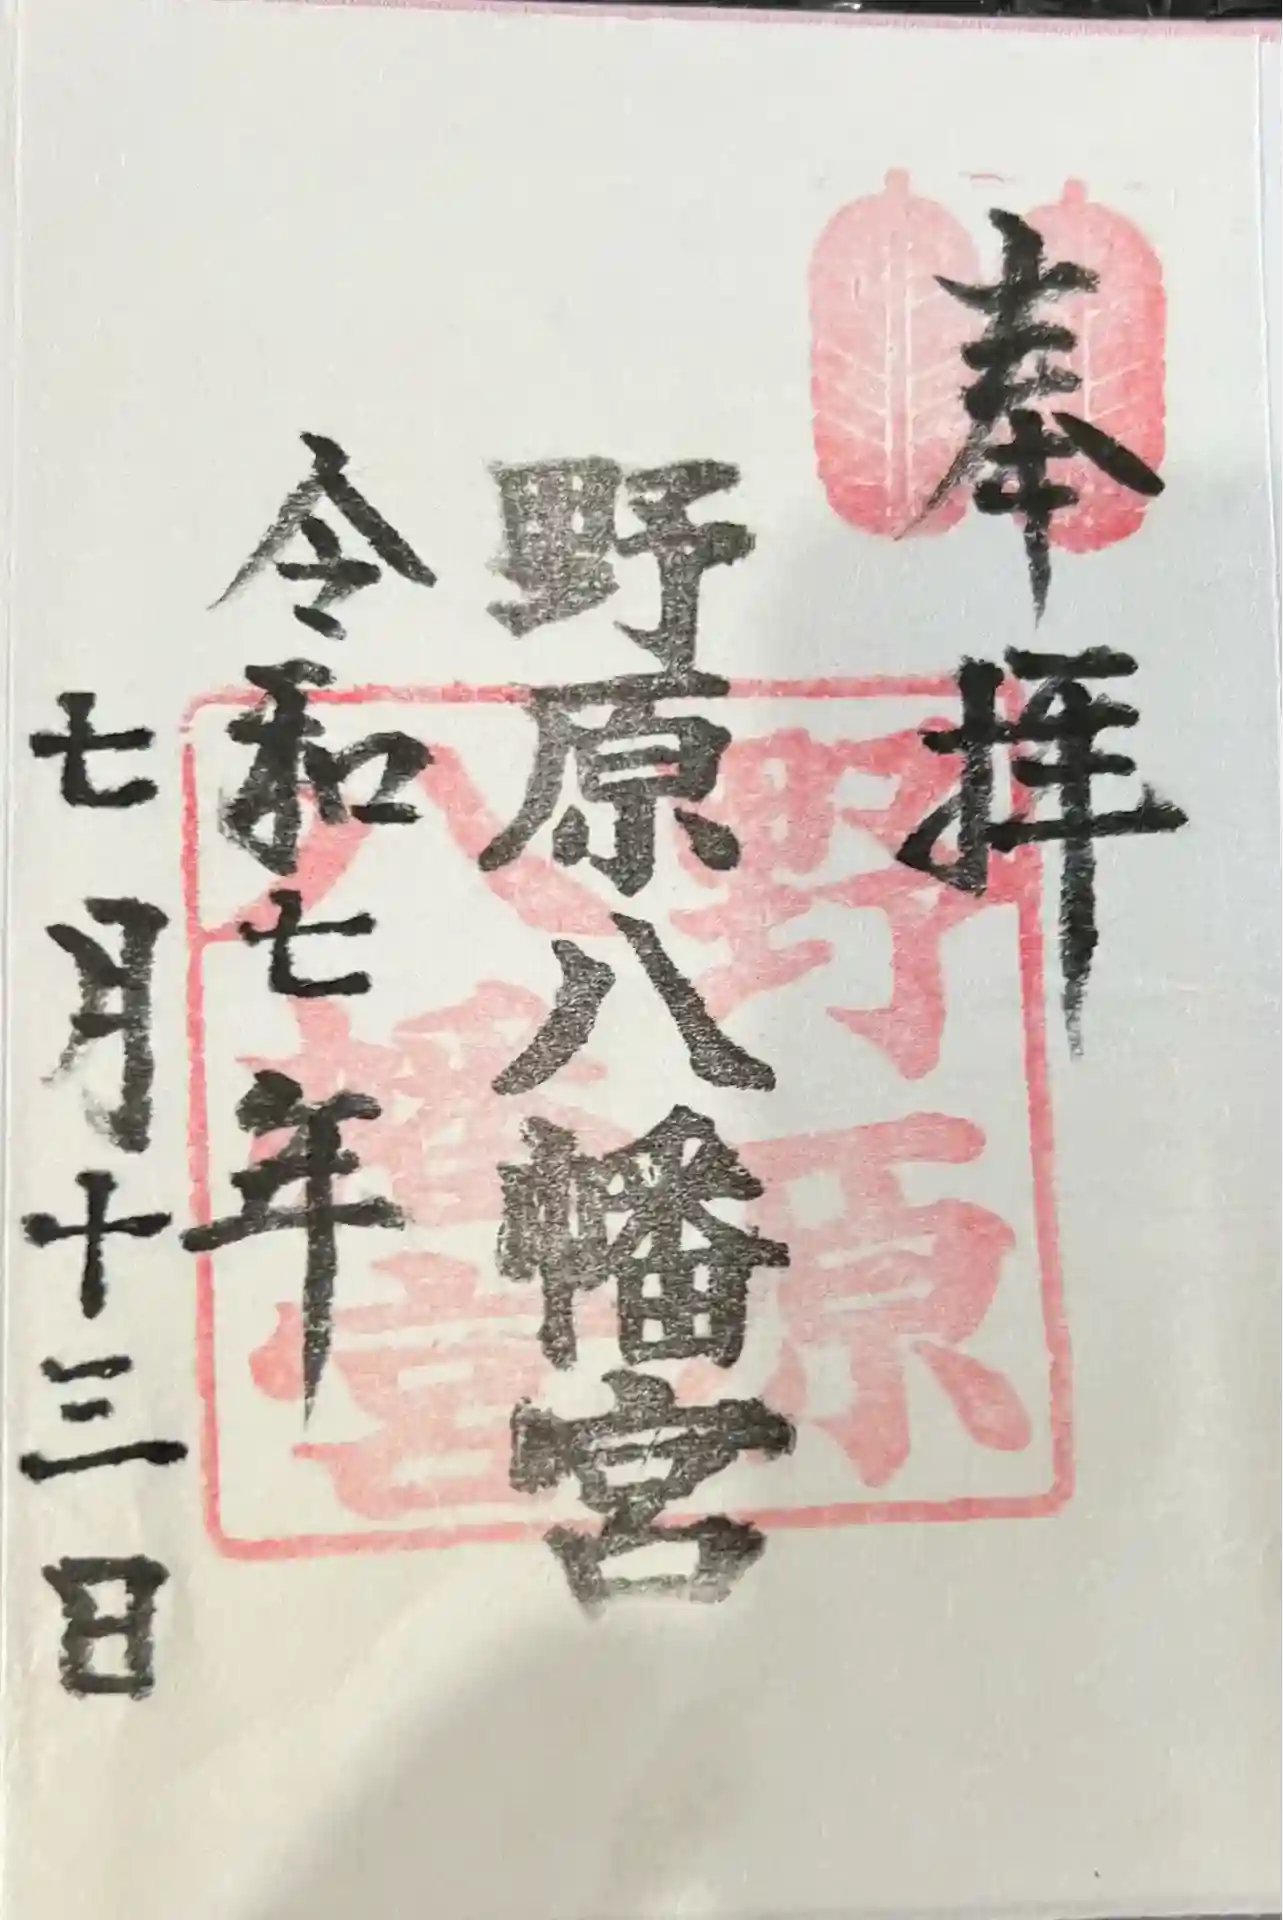 奉拝
野原八幡宮
野原
八幡宮
令和七年
七月十三日